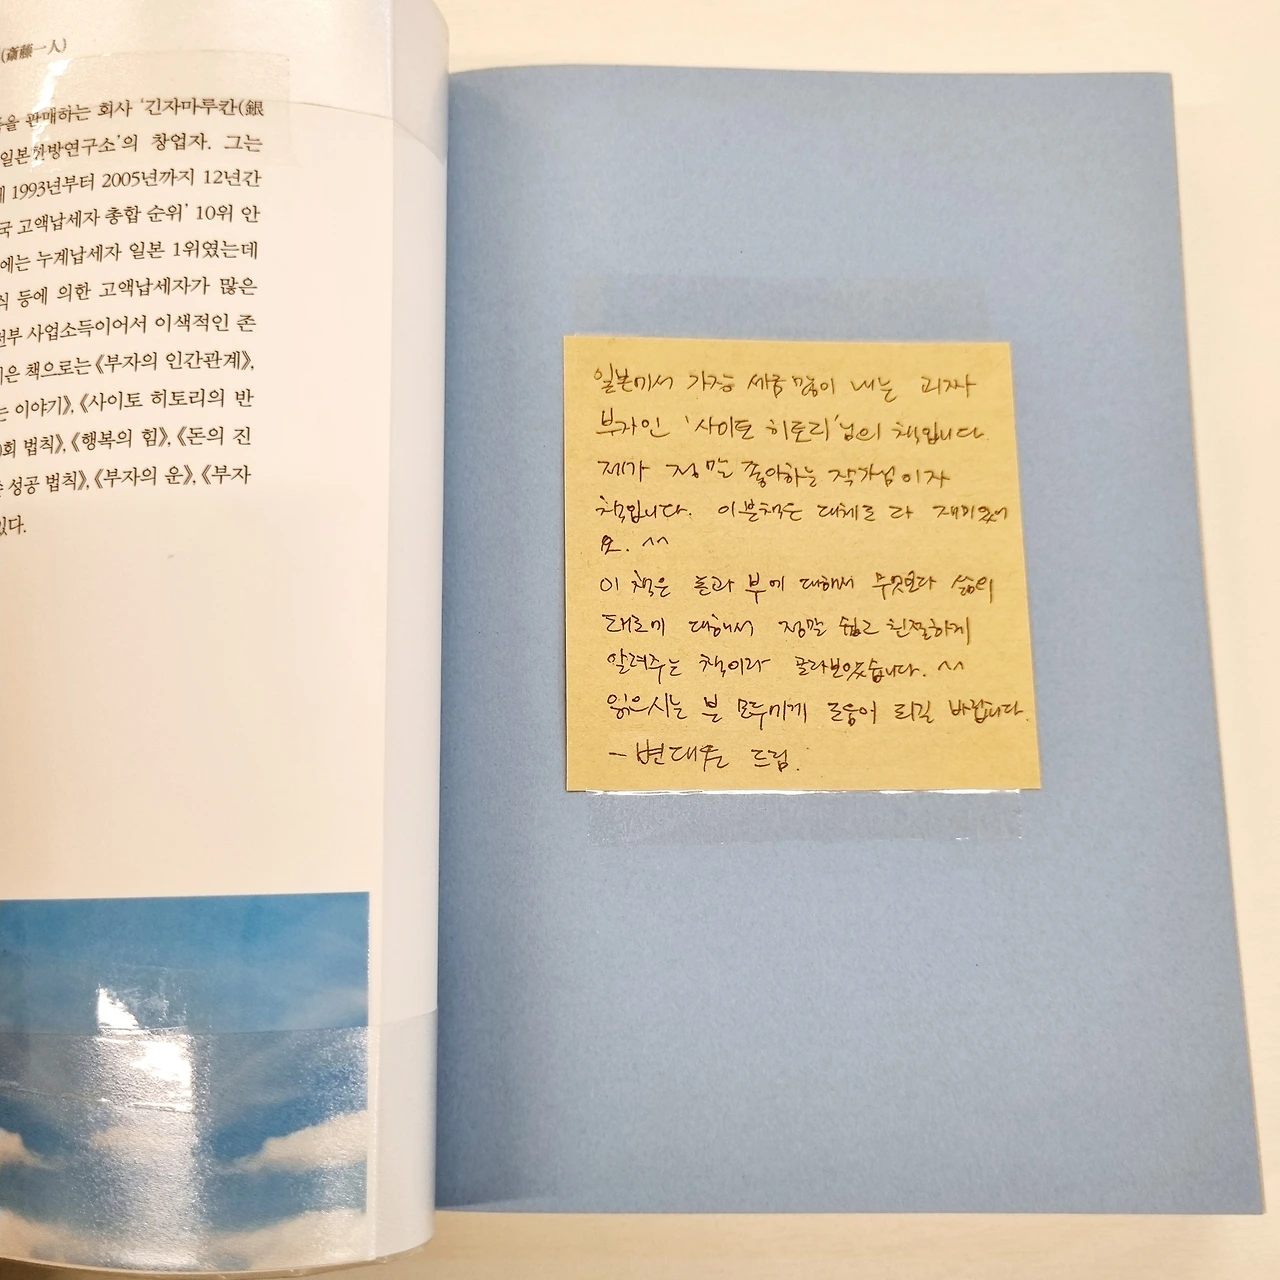 (斎藤一人)
을 판매하는 회사 ‘긴자마루칸(銀
일본한방연구소’의 창업자. 그는
1993년부터 2005년까지 12년간
국 고액납세자 총합 순위’ 10위 안
에는 누계납세자 일본 1위였는데
식 등에 의한 고액납세자가 많은
전부 사업소득이어서 이색적인 존
은 책으로는 《부자의 인간관계》,
는 이야기》, 《사이토 히토리의 반
회 법칙》, 《행복의 힘》, 《돈의 진
성공 법칙》, 《부자의 운》, 《부자
있다.
일본에서 가장 세금 많이 내는 괴짜
부자인 '사이토 히토리'님의 책입니다.
제가 정말 좋아하는 작가님이자
책입니다. 이분책은 대체로 다 재미있어
요. ^^
이 책은 돈과 부에 대해서 무엇보다 삶의
태도에 대해서 정말 쉽고 친절하게
알려주는 책이라 골라보았습니다. ^^
읽으시는 분 모두에게 도움이 되길 바랍니다.
- 변대원 드림.